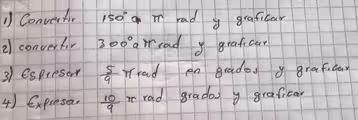 1) Convertir 150° a π rad y graficar
2) convertir 300° a π rad y graficar
3) Espresar 5/9 π rad en grados y graficar
4) Expresar 10/9 π rad grados y graficar